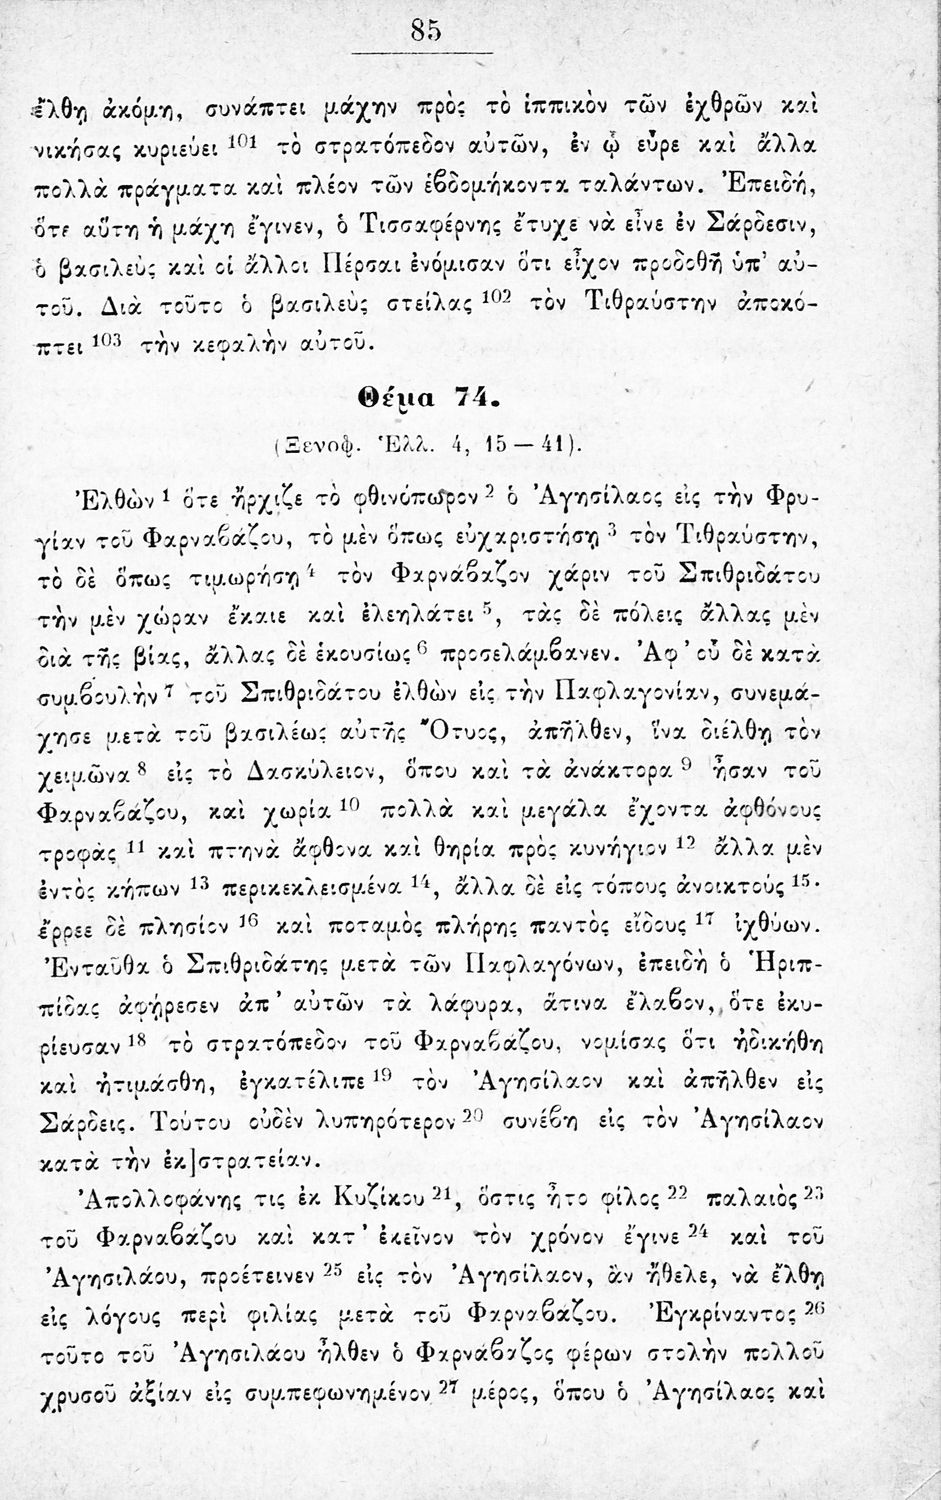 85
ἔλθῃ ἀκόμη, συνάπτει μάχην πρὸς τὸ ἱππικὸν τῶν ἐχθρῶν καὶ
νικήσας κυριεύει 101 τὸ στρατόπεδον αὐτῶν, ἐν ᾧ εὗρε καὶ ἄλλα
πολλὰ πράγματα καὶ πλέον τῶν ἑβδομήκοντα ταλάντων. Ἐπειδή,
ὅτε αὕτη ἡ μάχη ἔγινεν, ὁ Τισσαφέρνης ἔτυχε νὰ εἶνε ἐν Σάρδεσιν,
ὁ βασιλεὺς καὶ οἱ ἄλλοι Πέρσαι ἐνόμισαν ὅτι εἶχον προδοθῆ ὑπ’ αὐ-
τοῦ. Διὰ τοῦτο ὁ βασιλεὺς στείλας 102 τὸν Τιθραύστην ἀποκό-
πτει 103 τὴν κεφαλὴν αὐτοῦ.
Θέμα 74.
(Ξενοφ. Ἑλλ. 4, 15 — 41).
Ἐλθὼν 1 ὅτε ἤρχιζε τὸ φθινόπωρον 2 ὁ Ἀγησίλαος εἰς τὴν Φρυ-
γίαν τοῦ Φαρναβάζου, τὸ μὲν ὅπως εὐχαριστήσῃ 3 τὸν Τιθραύστην,
τὸ δὲ ὅπως τιμωρήσῃ 4 τὸν Φαρνάβαζον χάριν τοῦ Σπιθριδάτου
τὴν μὲν χώραν ἔκαιε καὶ ἐλεηλάτει 5, τὰς δὲ πόλεις ἄλλας μὲν
διὰ τῆς βίας, ἄλλας δὲ ἑκουσίως 6 προσελάμβανεν. Ἀφ’ οὗ δὲ κατὰ
συμβουλὴν 7 τοῦ Σπιθριδάτου ἐλθὼν εἰς τὴν Παφλαγονίαν, συνεμά-
χησε μετὰ τοῦ βασιλέως αὐτῆς Ὄτυος, ἀπῆλθεν, ἵνα διέλθῃ τὸν
χειμῶνα 8 εἰς τὸ Δασκύλειον, ὅπου καὶ τὰ ἀνάκτορα 9 ἦσαν τοῦ
Φαρναβάζου, καὶ χωρία 10 πολλὰ καὶ μεγάλα ἔχοντα ἀφθόνους
τροφὰς 11 καὶ πτηνὰ ἄφθονα καὶ θηρία πρὸς κυνήγιον 12 ἄλλα μὲν
ἐντὸς κήπων 13 περικεκλεισμένα 14, ἄλλα δὲ εἰς τόπους ἀνοικτούς 15·
ἔρρεε δὲ πλησίον 16 καὶ ποταμὸς πλήρης παντὸς εἴδους 17 ἰχθύων.
Ἐνταῦθα ὁ Σπιθριδάτης μετὰ τῶν Παφλαγόνων, ἐπειδὴ ὁ Ἡριπ-
πίδας ἀφῄρεσεν ἀπ’ αὐτῶν τὰ λάφυρα, ἅτινα ἔλαβον, ὅτε ἐκυ-
ρίευσαν 18 τὸ στρατόπεδον τοῦ Φαρναβάζου, νομίσας ὅτι ἠδικήθη
καὶ ἠτιμάσθη, ἐγκατέλιπε 19 τὸν Ἀγησίλαον καὶ ἀπῆλθεν εἰς
Σάρδεις. Τούτου οὐδὲν λυπηρότερον 20 συνέβη εἰς τὸν Ἀγησίλαον
κατὰ τὴν ἐκ]στρατείαν.
Ἀπολλοφάνης τις ἐκ Κυζίκου 21, ὅστις ἦτο φίλος 22 παλαιὸς 23
τοῦ Φαρναβάζου καὶ κατ’ ἐκεῖνον τὸν χρόνον ἔγινε 24 καὶ τοῦ
Ἀγησιλάου, προέτεινεν 25 εἰς τὸν Ἀγησίλαον, ἂν ἤθελε, νὰ ἔλθῃ
εἰς λόγους περὶ φιλίας μετὰ τοῦ Φαρναβάζου. Ἐγκρίναντος 26
τοῦτο τοῦ Ἀγησιλάου ἦλθεν ὁ Φαρνάβαζος φέρων στολὴν πολλοῦ
χρυσοῦ ἀξίαν εἰς συμπεφωνημένον 27 μέρος, ὅπου ὁ Ἀγησίλαος καὶ